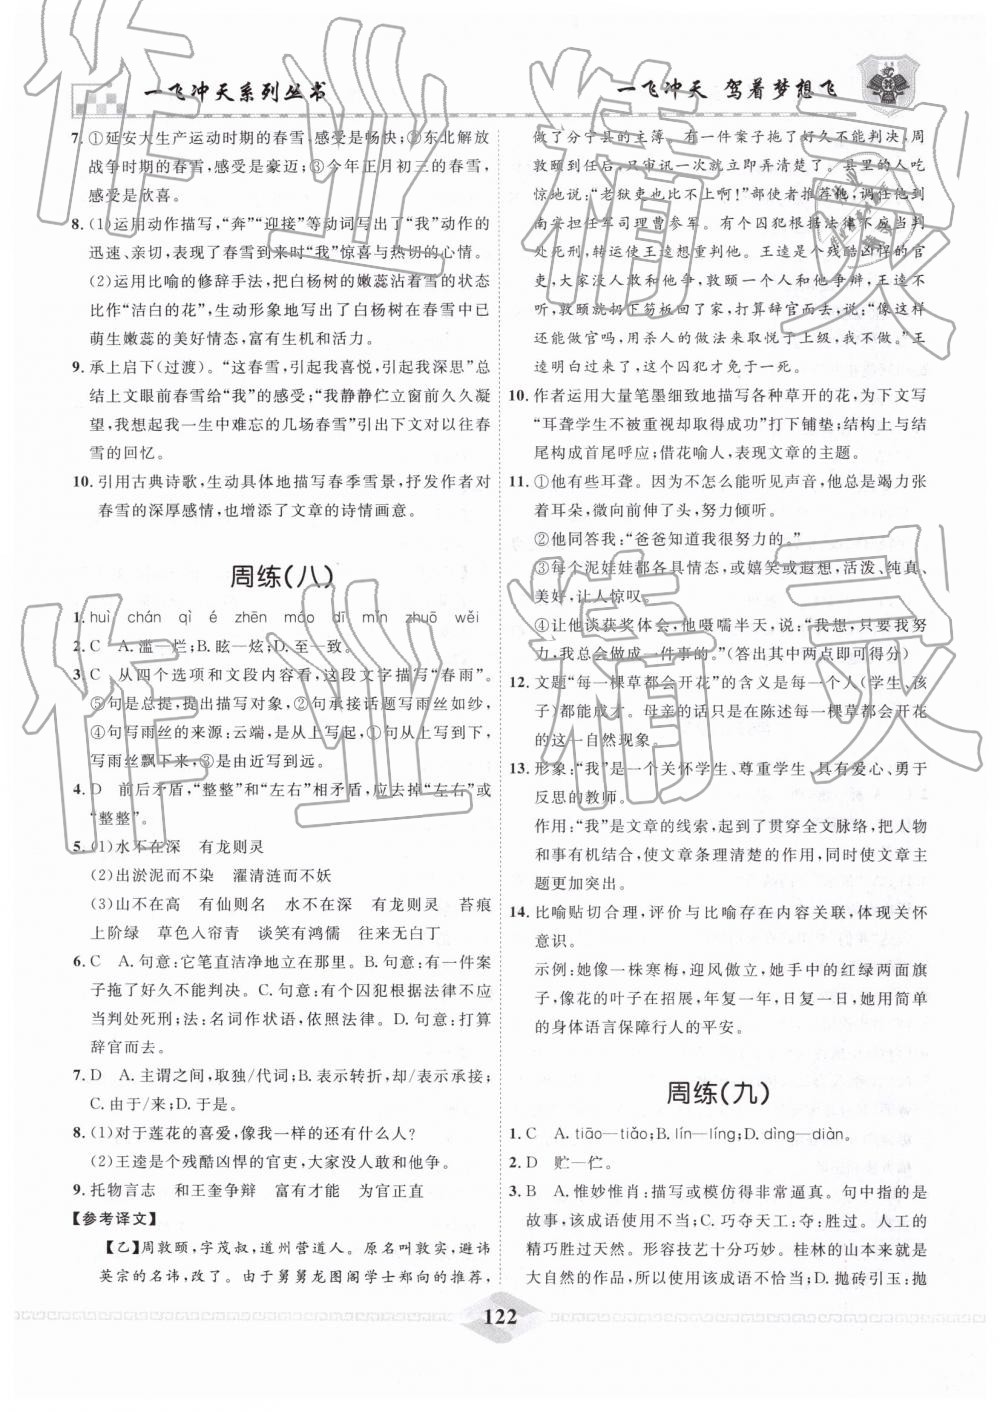 一飞冲天系列丛书
一飞冲天 驾着梦想飞
7. ①延安大生产运动时期的春雪,感受是畅快;②东北解放
战争时期的春雪,感受是豪迈;③今年正月初三的春雪,感
受是欣喜。
8. (1)运用动作描写,“奔”“迎接”等动词写出了“我”动作的
迅速、亲切,表现了春雪到来时“我”惊喜与热切的心情。
(2)运用比喻的修辞手法,把白杨树的嫩蕊沾着雪的状态
比作“洁白的花”,生动形象地写出了白杨树在春雪中已
萌生嫩蕊的美好情态,富有生机和活力。
9. 承上启下(过渡)。“这春雪,引起我喜悦,引起我深思”总
结上文眼前春雪给“我”的感受;“我静静伫立窗前久久凝
望,我想起我一生中难忘的几场春雪”引出下文对以往春
雪的回忆。
10. 引用古典诗歌,生动具体地描写春季雪景,抒发作者对
春雪的深厚感情,也增添了文章的诗情画意。
周练(八)
1. huì chán qì é zhēn máo dī mǐn zhuō wěi
2. C A. 滥—烂;B. 眩—炫;D. 至—致。
3. C 从四个选项和文段内容看,这段文字描写“春雨”。
⑤句是总提,提出描写对象,②句承接话题写雨丝如纱,
④句写雨丝的来源:云端,是从上写起,①句从上往下,
写雨丝飘下来,③是由近写到远。
4. D 前后矛盾,“整整”和“左右”相矛盾,应去掉“左右”或
“整整”。
5. (1)水不在深 有龙则灵
(2)出淤泥而不染 濯清涟而不妖
(3)山不在高 有仙则名 水不在深 有龙则灵 苔痕
上阶绿 草色入帘青 谈笑有鸿儒 往来无白丁
6. C A. 句意:它笔直洁净地立在那里。B. 句意:有一件案
子拖了好久不能判决。C. 句意:有个囚犯根据法律不应
当判处死刑;法:名词作状语,依照法律。D. 句意:打算
辞官而去。
7. D A. 主谓之间,取独/代词;B. 表示转折,却/表示承接;
C. 由于/来;D. 于是。
8. (1)对于莲花的喜爱,像我一样的还有什么人?
(2)王逵是个残酷凶悍的官吏,大家没有人敢和他争。
9. 托物言志 和王奎争辩 富有才能 为官正直
【参考译文】
【乙】周敦颐,字茂叔,道州营道人。原名叫敦实,避讳
英宗的名讳,改了。由于舅舅龙图阁学士郑向的推荐,
做了分宁县的主簿。有一件案子拖了好久不能判决。周
敦颐到任后,只审讯一次就立即弄清楚了。县里的人吃
惊地说:“老狱吏也比不上啊!”部使者推荐他,调他到
南安担任军司理曹参军。有个囚犯根据法律不应当判
处死刑,转运使王逵想重判他。王逵是个残酷凶悍的官
吏,大家没人敢和他争,敦颐一个人和他争辩,王逵不
听,敦颐就扔下笏板回了家,打算辞官而去,说:“像这样
还能做官吗,用杀人的做法来取悦于上级,我不做。”王
逵明白过来了,这个囚犯才免于一死。
10. 作者运用大量笔墨细致地描写各种草开的花,为下文写
“耳聋学生不被重视却取得成功”打下铺垫;结构上与结
尾构成首尾呼应;借花喻人,表现文章的主题。
11. ①他有些耳聋。因为不怎么能听见声音,他总是竭力张
着耳朵,微向前伸了头,努力倾听。
②他回答我:“爸爸知道我很努力的。”
③每个泥娃娃都各具情态,或嬉笑或嗔怒,活泼、纯真、
美好,让人惊叹。
④让他谈获奖体会,他嗫嚅半天,说:“我想,只要我努
力,我总会做成一件事的。”(答出其中两点即可得分)
12. 文题“每一棵草都会开花”的含义是每一个人(学生、孩
子)都能成才。母亲的话只是在陈述每一棵草都会开花
的这一自然现象。
13. 形象:“我”是一个关怀学生、尊重学生、具有爱心、勇于
反思的教师。
作用:“我”是文章的线索,起到了贯穿全文脉络,把人物
和事有机结合,使文章条理清楚的作用,同时使文章主
题更加突出。
14. 比喻贴切合理,评价与比喻存在内容关联,体现关怀
意识。
示例:她像一株寒梅,迎风傲立,她手中的红绿两面旗
子,像花的叶子在招展,年复一年,日复一日,她用简单
的身体语言保障行人的平安。
周练(九)
1. C A. tiāo—tiǎo;B. lín—líng;D. dìng—diàn。
2. D 贮—伫。
3. B A. 惟妙惟肖:描写或模仿得非常逼真。句中指的是
故事,该成语使用不当;C. 巧夺天工:夺:胜过。人工的
精巧胜过天然。形容技艺十分巧妙。桂林的山本来就是
大自然的作品,所以使用该成语不恰当;D. 抛砖引玉:抛
122
作业精灵
作业精灵